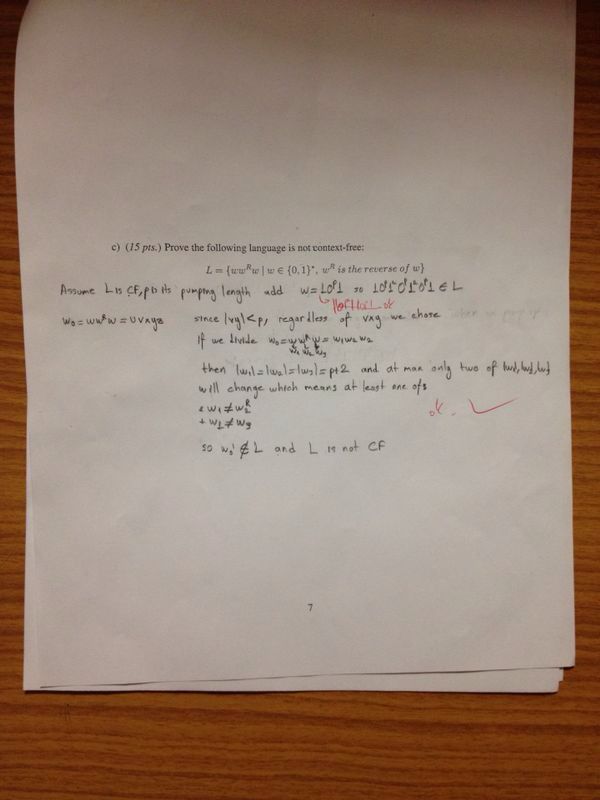 c) (15 pts.) Prove the following language is not context-free:
L = {wwᴿw | w ∈ {0,1}*, wᴿ is the reverse of w}
Assume L is CF, p is its pumping length add w = 10ᵖ1 so 10ᵖ1²0ᵖ1²0ᵖ1 ∈ L
w₀ = wwᴿw = uvxyz since |vxy| < p, regardless of vxy we chose
If we divide w₀ = wwᴿw = w₁w₂w₂
w₁ w₂ w₃
then |w₁| = |w₂| = |w₃| = p+2 and at max only two of |w₁|, |w₂|, |w₃|
will change which means at least one of:
+ w₁ ≠ w₂ᴿ
ok. ✓
+ w₁ ≠ w₃
so w₀' ∉ L and L is not CF
7